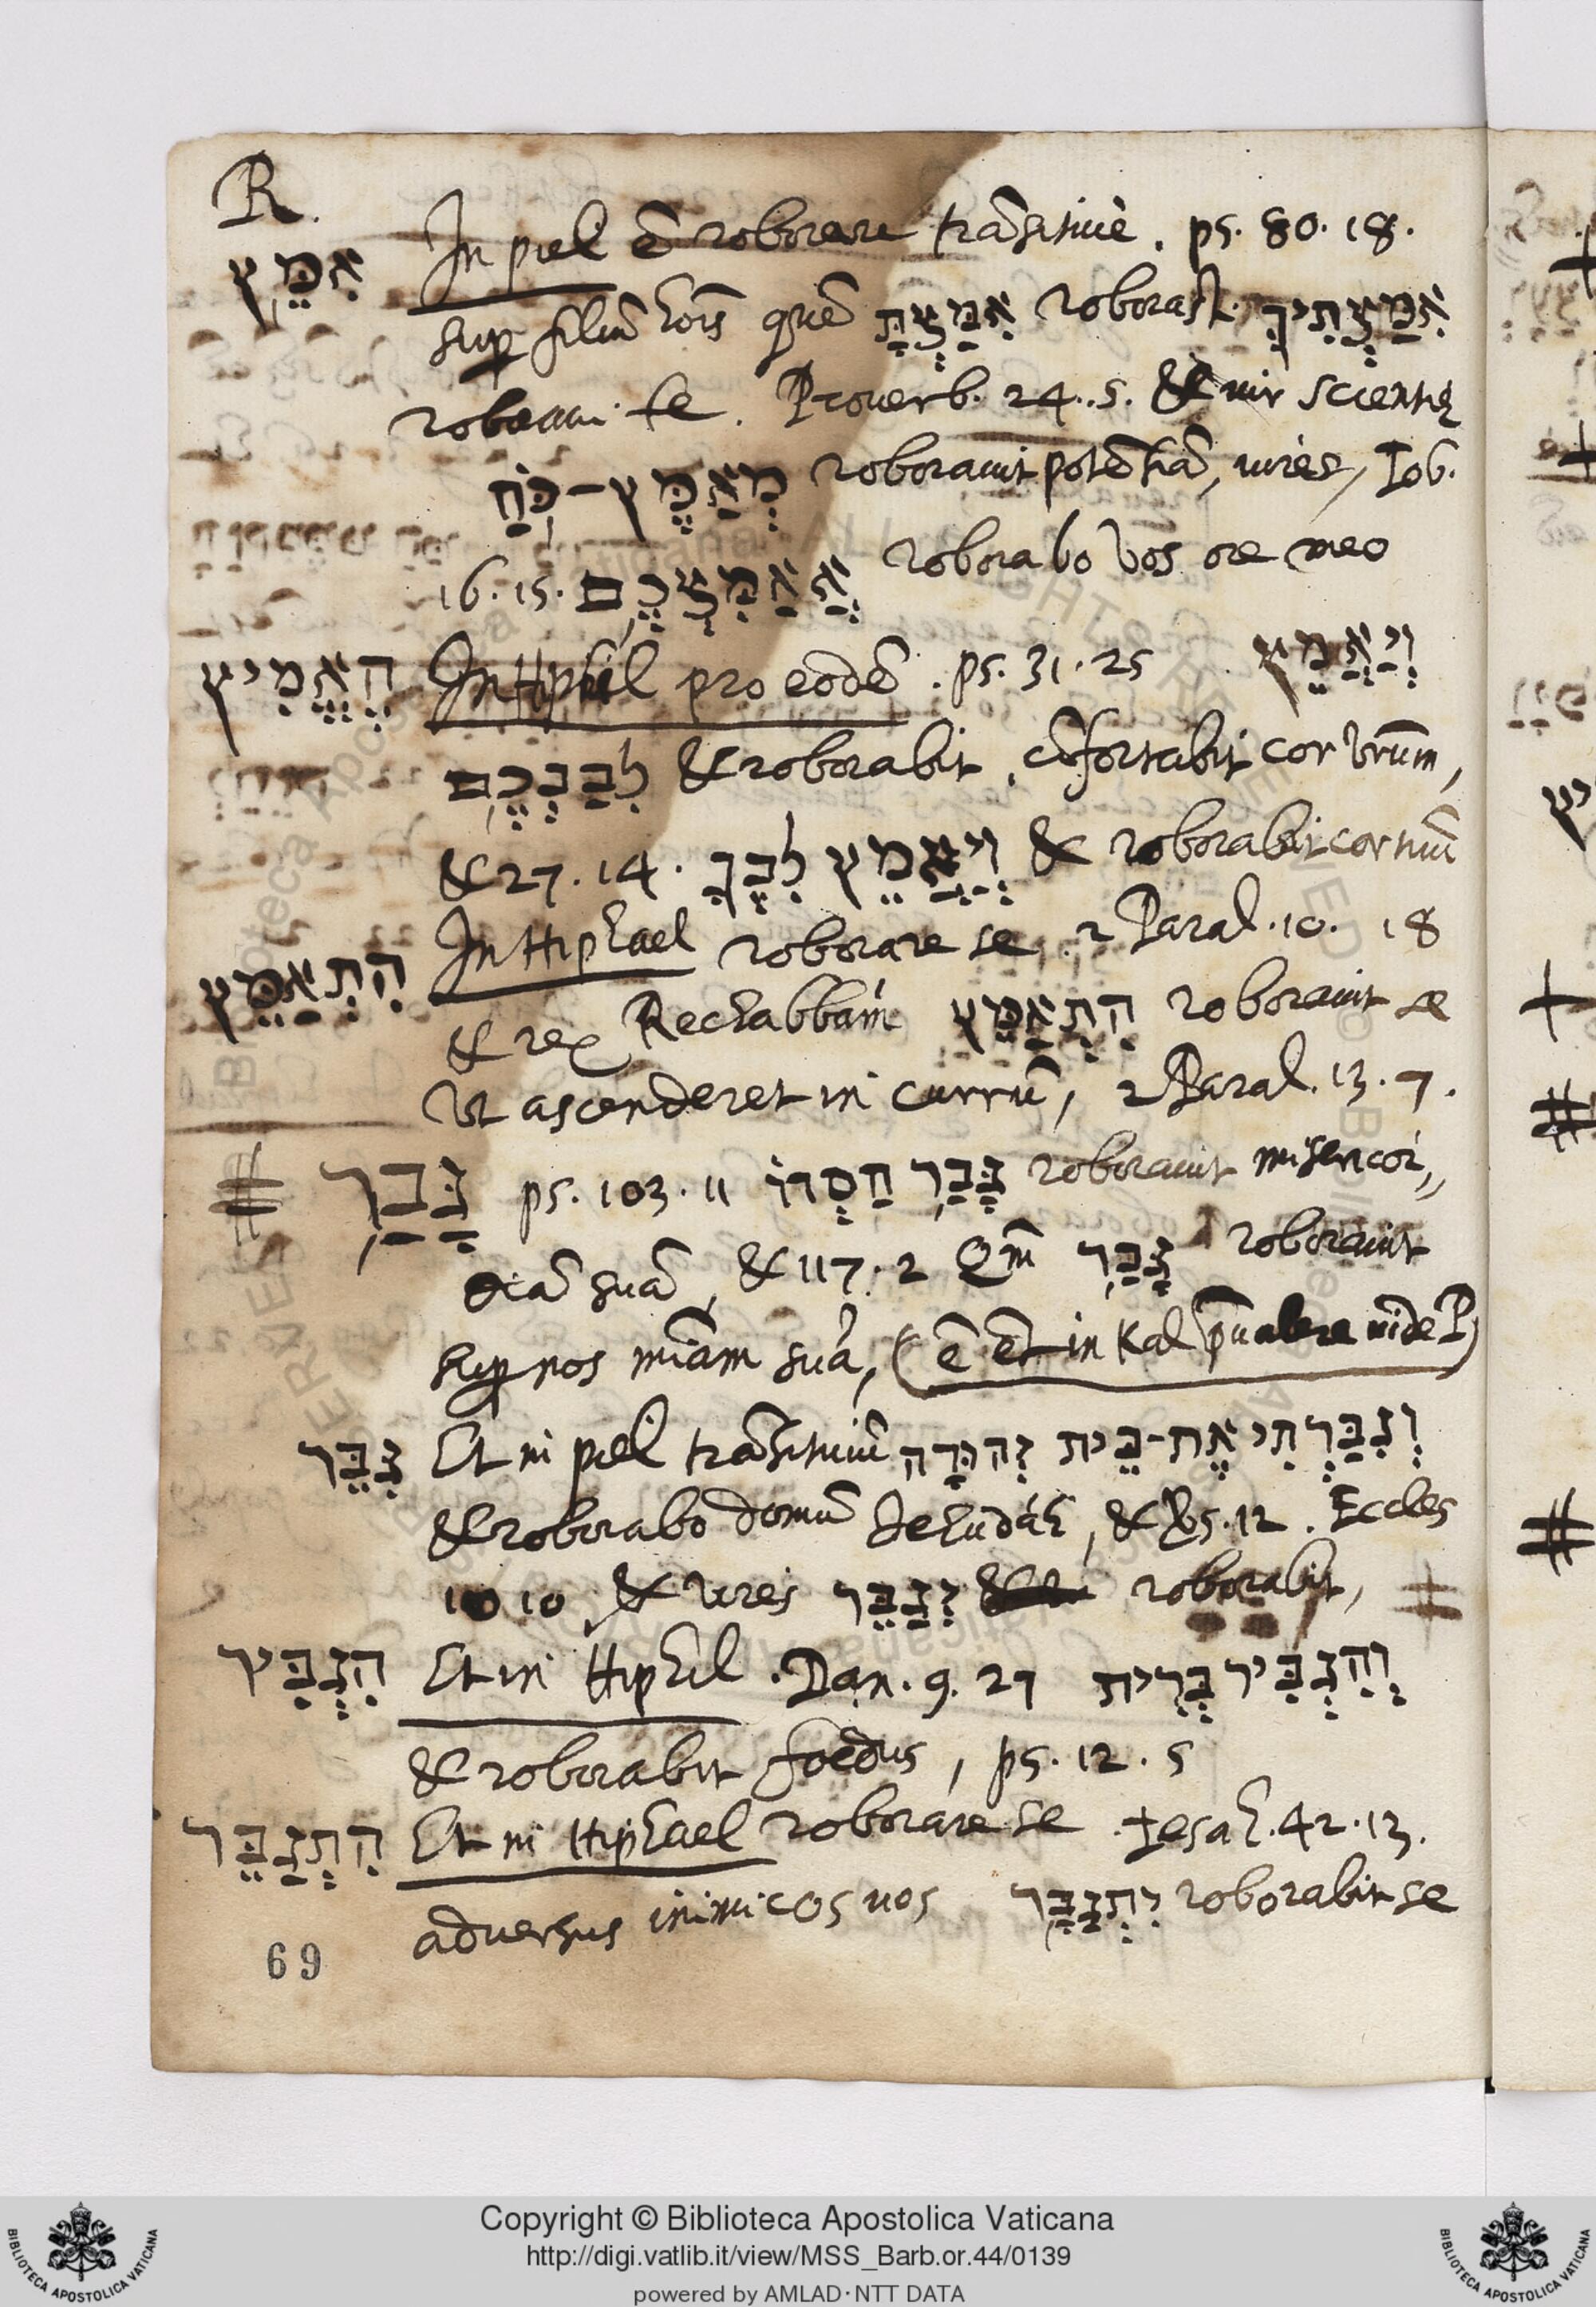 R.
אִמֵּץ In piel ē roborare trāsitiuè. ps. 80. 18.
sup filiū hoīs quē אִמַּצְתָּ roborast. אִמַּצְתִּיךָ
roboraui te. Prouerb. 24. 5. & uir scientię
מְאַמֶּץ־כֹּחַ roborauit potētiā, uires, Iob.
16. 15. אֲאַמִּצְכֶם roborabo vos ore meo
הֶאֱמִיץ In Hiphil pro eodē. ps. 31. 25 וְיַאֲמֵץ
לְבַבְכֶם & roborabit, cōfortabit cor vrūm,
& 27. 14. וְיַאֲמֵץ לִבֶּךָ & roborabit cor tuū
הִתְאַמֵּץ In Hiphael roborare se 2 Paral. 10. 18
& rex Rechabbám הִתְאַמֵּץ roborauit se
vt ascenderet in currū, 2 Paral. 13. 7.
גָּבַר ps. 103. 11 גָּבַר חַסְדּוֹ roborauit misericor,,
diā suā, & 117. 2 Qm̄ גָבַר roborauit
sup nos mīam suā, (ē ēt in Kal p̄ualere uide P)
גִּבֵּר Et in piel trāsitiuū וְגִבַּרְתִּי אֶת־בֵּית יְהוּדָה
& roborabo domū Iehudáh, & vs. 12. Eccles
10 10 & vires יְגַבֵּר roborabit,
הִגְבִּיר Et in Hiphil. Dan. 9. 27 וְהִגְבִּיר בְּרִית
& roborabit foedus, ps. 12. 5
הִתְגַּבֵּר Et in Hiphael roborare se Iesah. 42. 13.
aduersus inimicos uos יִתְגַּבָּר roborabit se
69
Copyright © Biblioteca Apostolica Vaticana
http://digi.vatlib.it/view/MSS_Barb.or.44/0139
powered by AMLAD·NTT DATA
BIBLIOTECA APOSTOLICA VATICANA
BIBLIOTECA APOSTOLICA VATICANA